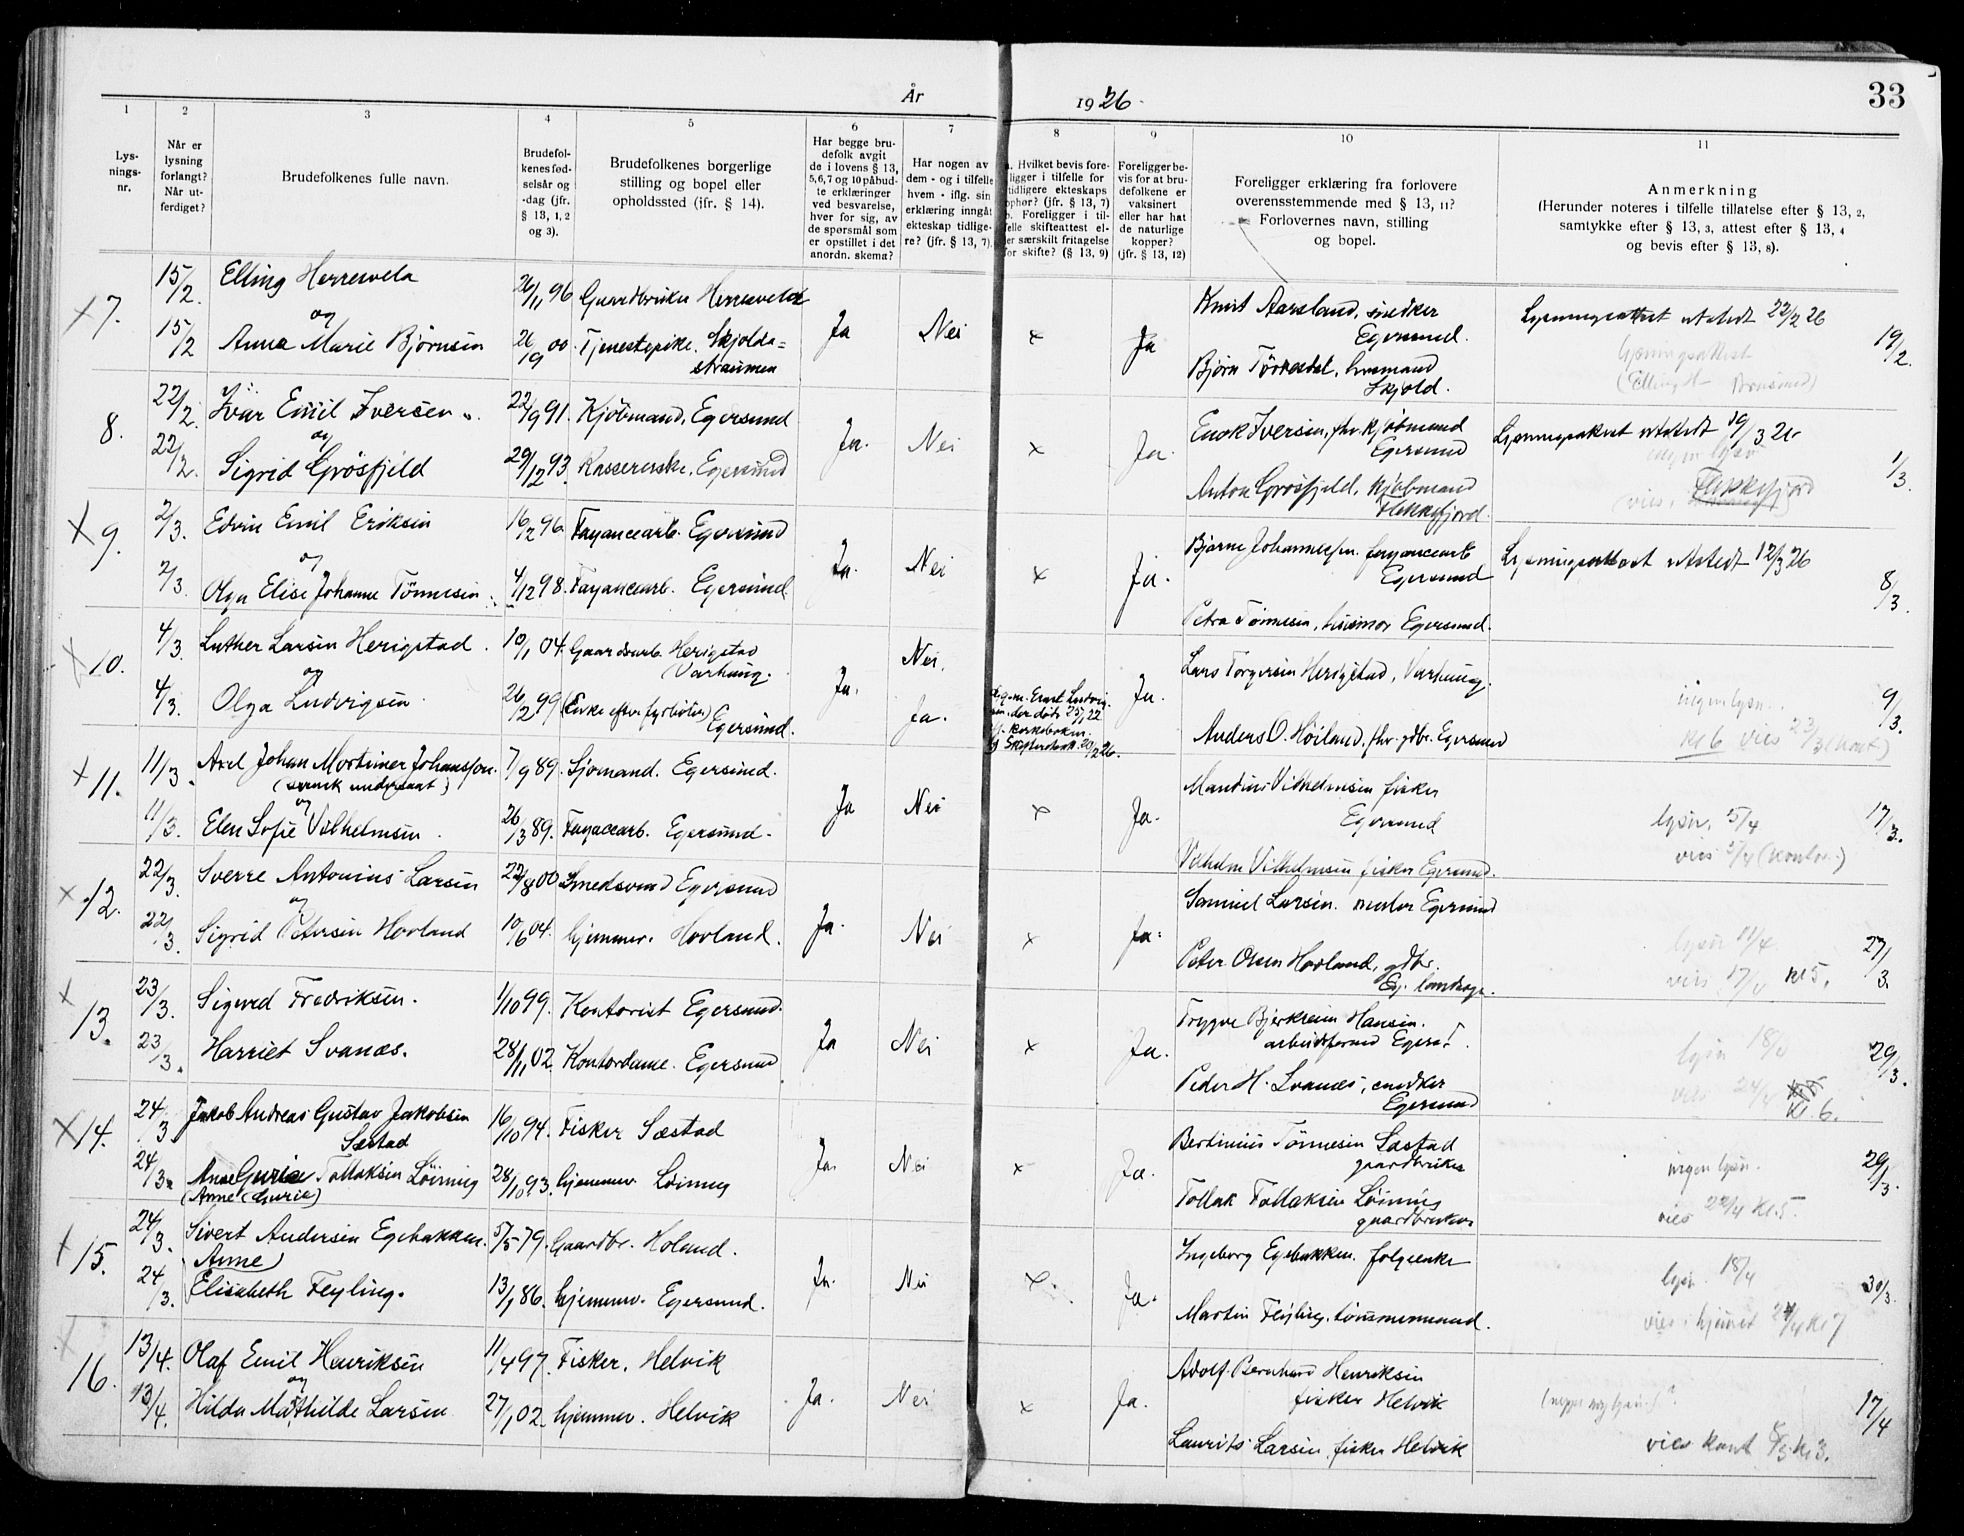 År 1926.
33
1 2 3 4 5 6 7 8 9 10 11
Lys-
nings-
nr.
Når er
lysning
forlangt?
Når ut-
ferdiget?
Brudefolkenes fulle navn.
Brudefol-
kenes fød-
selsår og
-dag (jfr.
§ 13, 1, 2
og 3).
Brudefolkenes borgerlige
stilling og bopel eller
opholdssted (jfr. § 14).
Har begge bru-
defolk avgit
de i lovens § 13,
5,6,7 og 10 påbud-
te erklæringer
ved besvarelse,
hver for sig, av
de spørsmål som
er opstillet i det
anordn. skema?
Har nogen av
dem - og i tilfelle
hvem - iflg. sin
erklæring inngåt
ekteskap tidlige-
re? (jfr. § 13, 7).
a. Hvilket bevis fore-
ligger i tilfelle for
tidligere ekteskaps
ophør? (jfr. § 13, 7)
b. Foreligger i til-
felle skifteattest el-
ler særskilt fritagelse
for skifte? (§ 13, 9)
Foreligger be-
vis for at bru-
defolkene er
vaksinert
eller har hat
de naturlige
kopper?
(jfr. § 13, 12)
Foreligger erklæring fra forlovere
overensstemmende med § 13, 11?
Forlovernes navn, stilling
og bopel.
Anmerkning
(Herunder noteres i tilfelle tillatelse efter § 13, 2,
samtykke efter § 13, 3, attest efter § 13, 4
og bevis efter § 13, 8).
x 7. 15/2. Elling Herresvela 26/11 96 Gaardbruker Herresvela
og
15/2 Anna Marie Björnsen 26/9 00. Tjenestepike. Skjolda=
straumen
Ja Nei x Ja
Knut Aarsland, snedker
Egersund.
Björn Törresdal, husmand
Skjold.
Lysningsattest utstedt 22/2 26
19/2.
8. 22/2. Ivar Emil Iversen 22/9 91. Kjöbmand, Egersund
og
22/2. Sigrid Grösfjeld 29/12 93. Kassererske. Egersund
Ja. Nei x Ja.
Enok Iversen, fhv. kjöbmand
Egersund
Anton Grösfjeld, kjöbmand
Flekkefjord.
Lysningsattest utstedt 19/3 26
(vies, Flekkefjord)
1/3.
x 9. 2/3. Edvin Emil Eriksen 16/2 96. Fayancearb. Egersund
og
2/3. Olga Elise Johanne Tönnesen 4/12 98. Fayancearb. Egersund
Ja. Nei x Ja.
Bjarne Johannessen. fayancearb
Egersund
Petra Tönnesen, husmor Egersund.
Lysningsattest utstedt 12/3 26
8/3.
x 10. 4/3. Luther Larsen Herigstad. 10/1 04. Gaardsarb. Herigstad
Varhaug.
og
4/3. Olga Ludvigsen. 26/2 99 (Enke efter fyrböter) Egersund.
Ja. Nei. Ja. Ja.
Lars Torgersen Herigstad, Varhaug.
Anders O. Höiland, fhv. gdbr. Egersund
ingen lysn.
kl 6 vies 23/3 (kont)
9/3.
x 11. 11/3. Axel Johan Mortimer Johansson. 7/9 89. Sjömand. Egersund.
(svensk undersaat)
og
11/3. Elen Sofie Vilhelmsen. 26/3 89. Fayacearb. Egersund.
Ja Nei x Ja.
Mandius Vilhelmsen fisker
Egersund
Vilhelm Vilhelmsen fisker Egersund.
lysn. 5/4
vies 5/4 (kontor.)
17/3.
x 12. 22/3. Sverre Antonius Larsen 22/8 00 Smedsvend Egersund
og
22/3. Sigrid Petersen Hovland 10/6 04. hjemmev. Hovland.
Ja. Nei x Ja.
Samuel Larsen. Egersund
Peter Olsen Hovland, gdbr.
Eg. landsogn.
lysn 11/4
vies 17/4 kl 5.
27/3.
x 13. 23/3. Sigurd Fredriksen. 1/10 99. Kontorist Egersund.
23/3. Harriet Svanæs. 28/11 02. Kontordame. Egersund
Ja Nei x Ja.
Trygve Bjerkreim Hansen.
arbeidsformand Egers.
Peder H. Svanæs, snedker
Egersund
lysn 18/4
vies 24/4 kl. 6.
29/3.
x 14. 24/3 Jakob Andreas Gustav Jakobsen 16/10 94. Fisker Sæstad
Sæstad
24/3. Anne Gurie Tollaksen Löining 28/10 93. hjemmev. Löining
(Anne Gurie)
Ja. Nei x Ja.
Bertinius Tönnesen Sæstad
gaardbruker
Tollak Tollaksen Löining
gaardbruker
ingen lysn.
vies 22/4 kl. 5.
29/3.
x 15. 24/3. Sivert Andersen Egebakken. 5/5 79. Gaardbr. Holand.
Anne
24/3. Elisabeth Feyling. 13/1 86. hjemmev. Egersund.
Ja. Nei x. Ja.
Ingeborg Egebakken. folgeenke
Martin Feyling. tömmermand.
lysn. 18/4
vies i hjemmet 24/4 kl 7
30/3.
x 16. 13/4. Olaf Emil Henriksen 11/4 97. Fisker. Helvik
og
13/4. Hilda Mathilde Larsen 27/1 02. hjemmev. Helvik
Ja. Nei x Ja.
Adolf Bernhard Henriksen
fisker Helvik
Laurits Larsen, fisker Helvik
vies kont /5 kl 3.
17/4